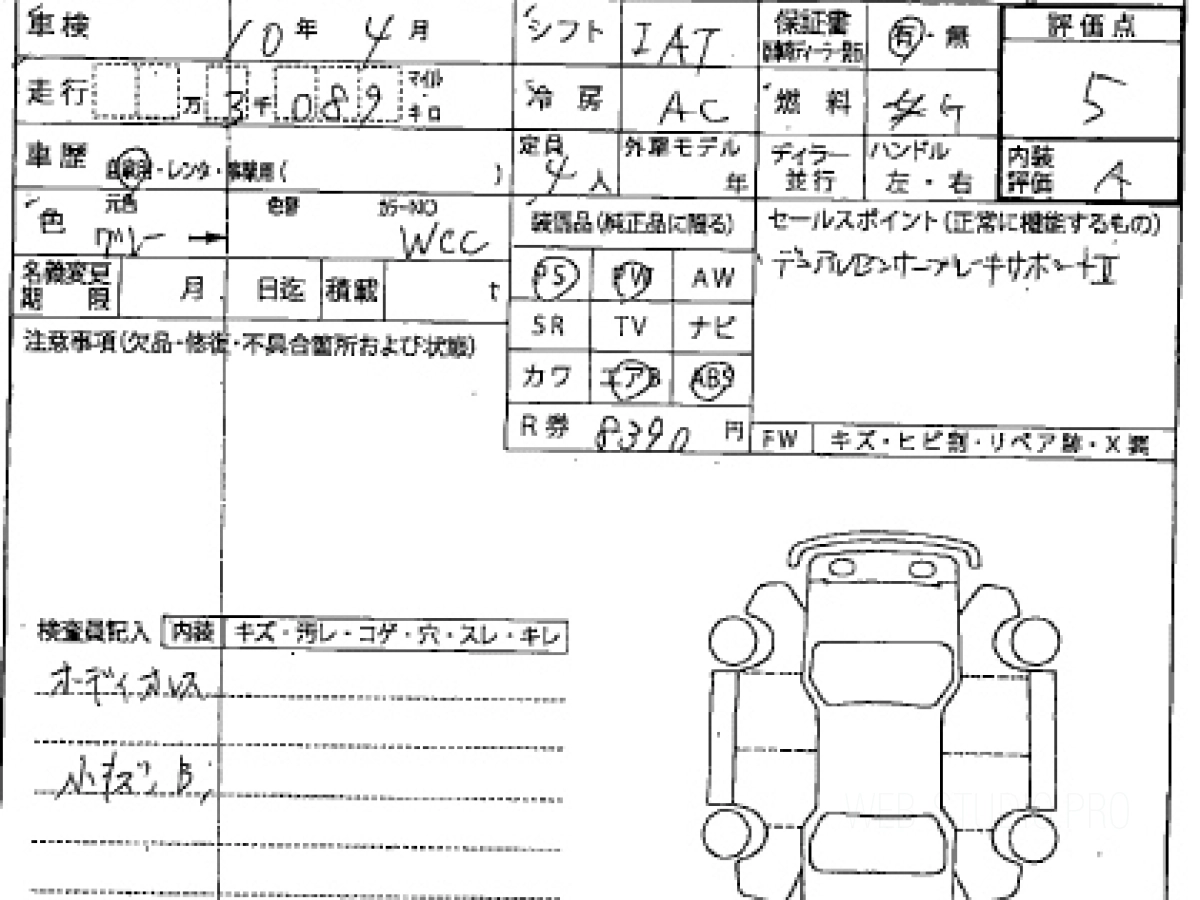 車検 10年 4月 シフト IAT 保証書 有・無 評価点
走行 万 3千 089 マイル キロ 冷房 AC 燃料 G 5
車歴 自家用・レンタ・事業用( ) 定員 4人 外車モデル 年 ディラー 並行 ハンドル 左・右 内装評価 A
色 元色 グレー → 色替 カラーNO WCC 装備品(純正品に限る) セールスポイント(正常に機能するもの)
デュアルセンサーブレーキサポートII
名義変更期限 月 日迄 積載 t PS PW AW
SR TV ナビ
注意事項(欠品・修復・不具合箇所および状態)
カワ エアB ABS
R券 8390 円 FW キズ・ヒビ割・リペア跡・X要
検査員記入 内装 キズ・汚レ・コゲ・穴・スレ・キレ
オーディオレス
小キズ
WEB STUDIO PRO